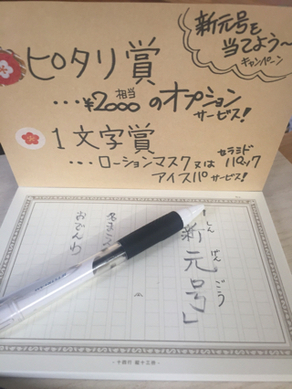 新元号を
当てよう〜
キャンペーン
ピタリ賞
・・・¥2000相当のオプション
サービス!
1文字賞
・・・ローションマスク又はセラミドパック
アイスパサービス!
「新元号」
しんげんごう
おでんわ